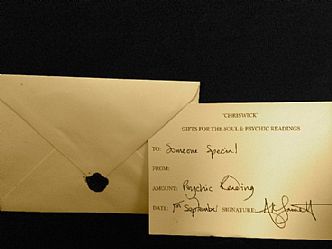 'CHRISWICK'
GIFTS FOR THE SOUL & PSYCHIC READINGS
TO: Someone Special!
FROM:
AMOUNT: Psychic Reading
DATE: 1st September SIGNATURE: